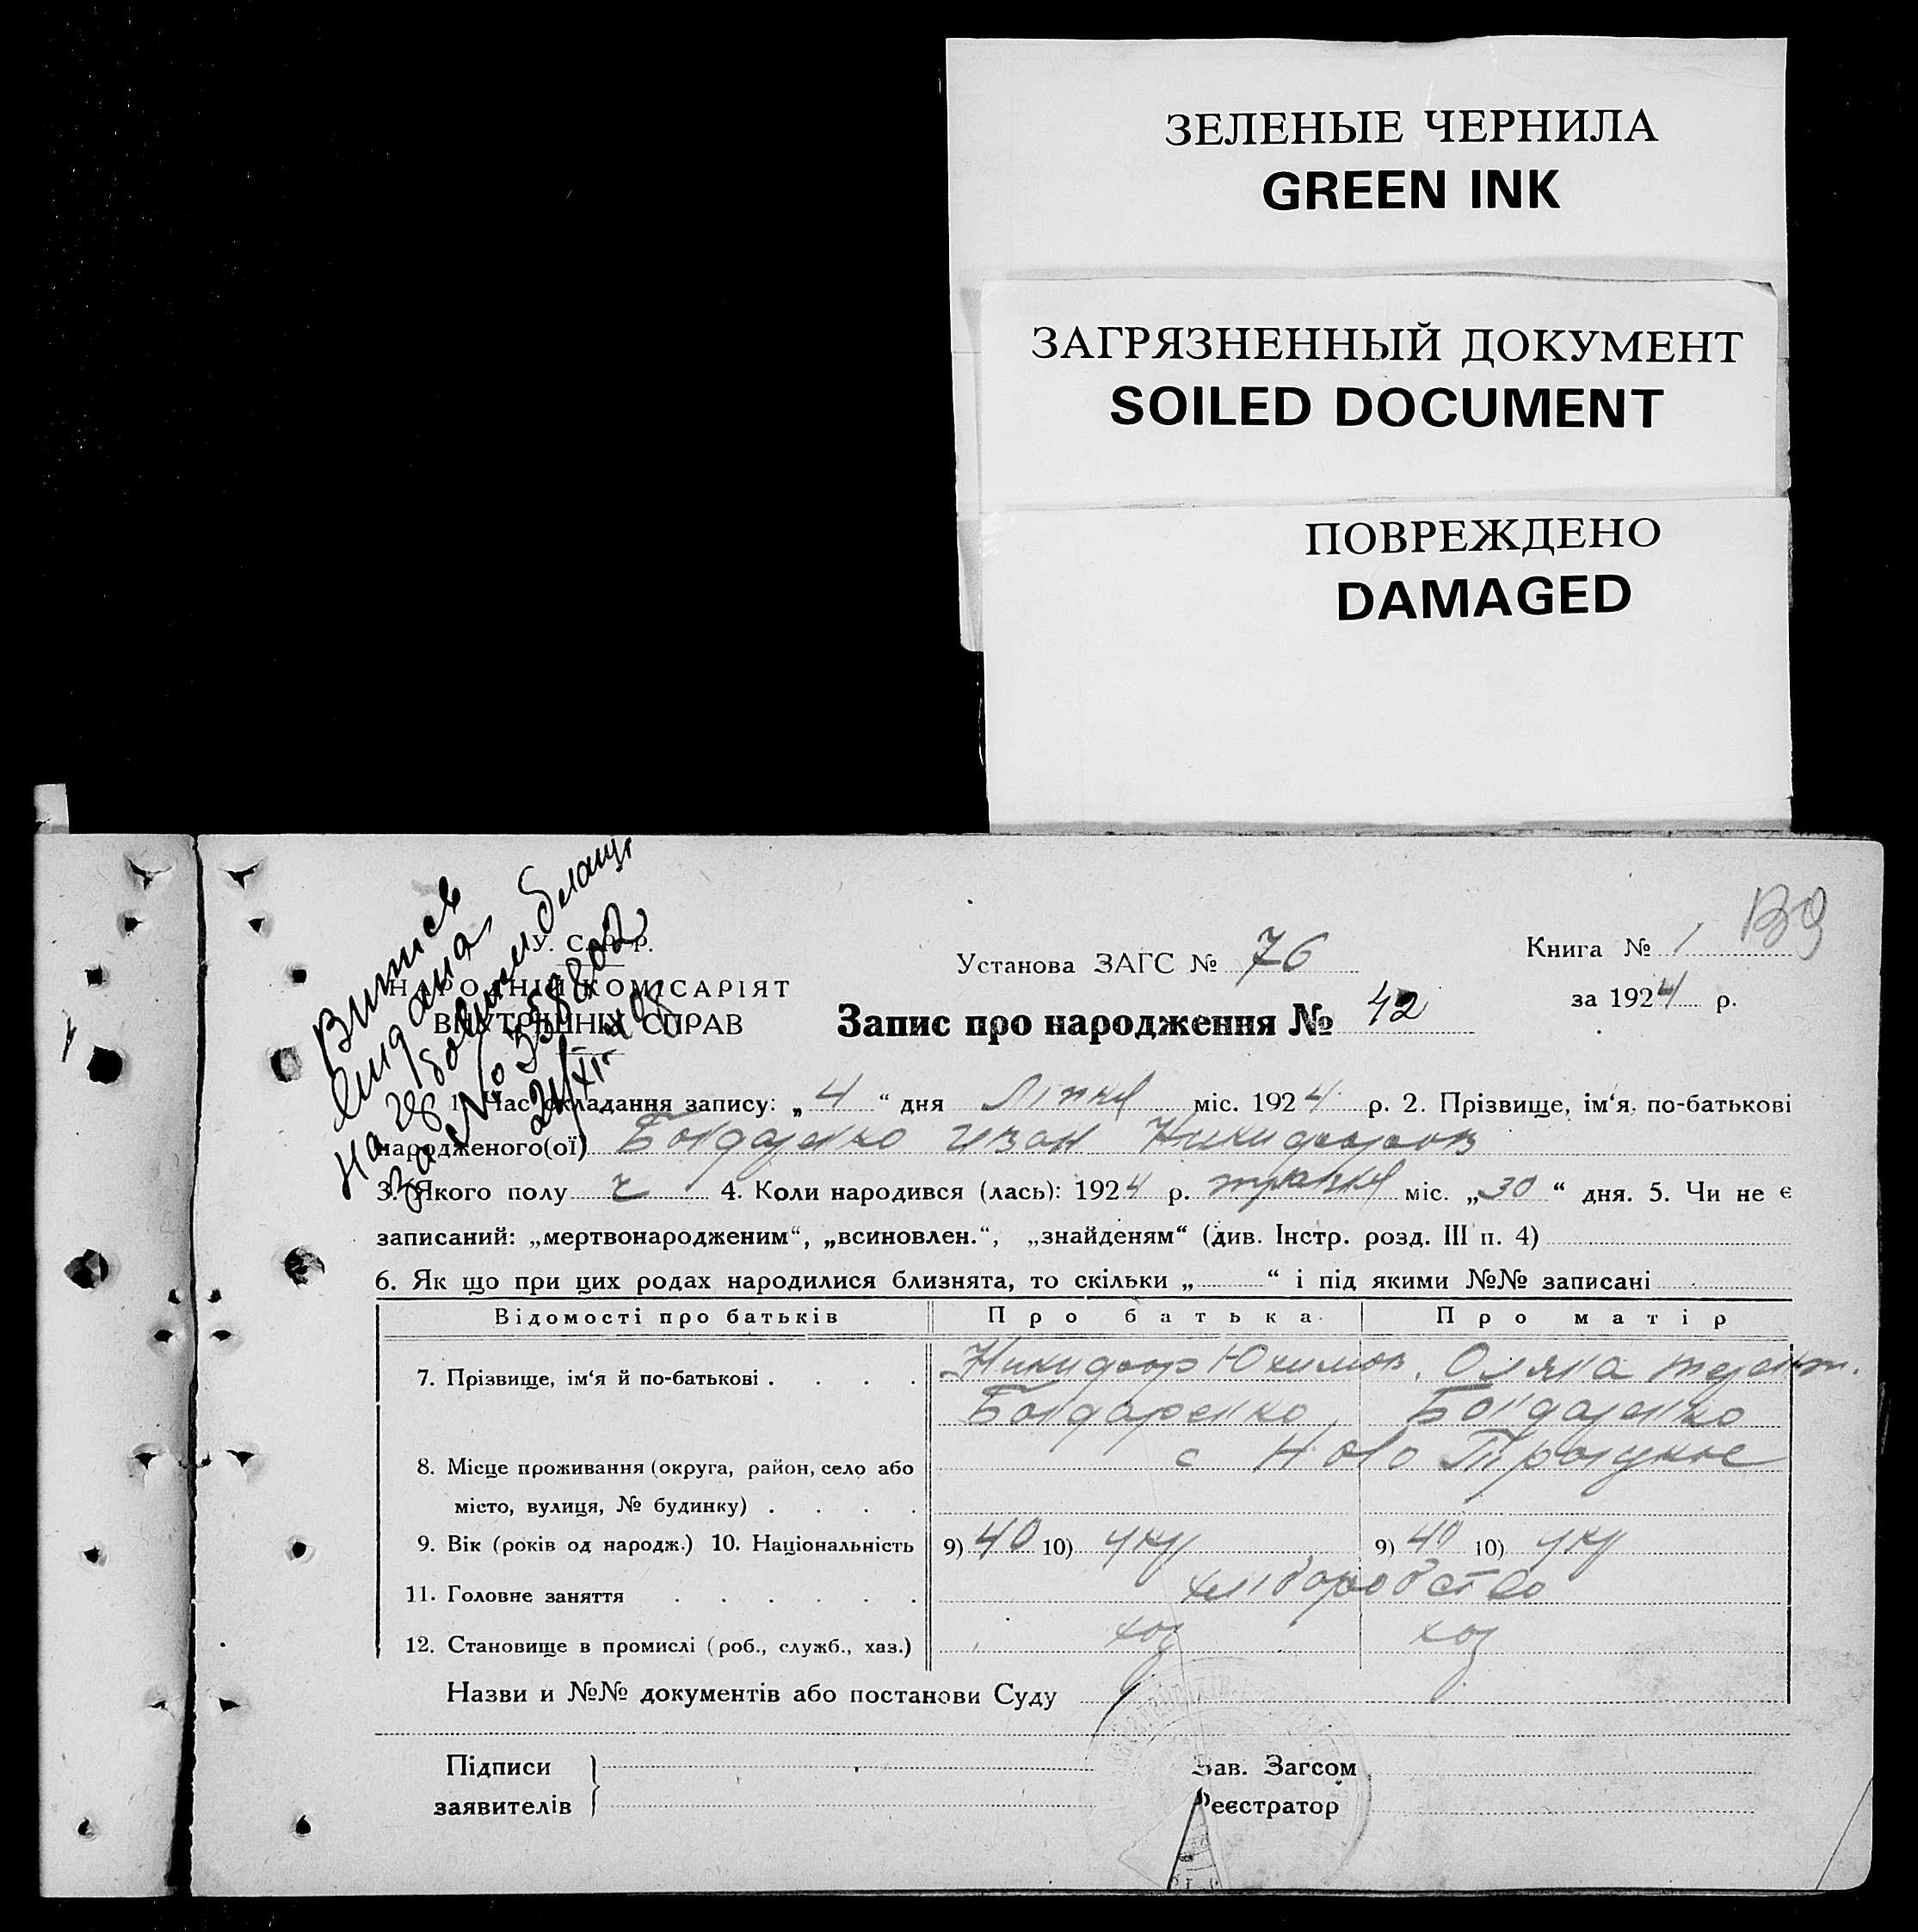 ЗЕЛЕНЫЕ ЧЕРНИЛА
GREEN INK
ЗАГРЯЗНЕННЫЙ ДОКУМЕНТ
SOILED DOCUMENT
ПОВРЕЖДЕНО
DAMAGED
Витяг
видана
на
за №
У. С. Р. Р.
НАРОДНІЙ КОМІСАРІЯТ
ВНУТРІШНІХ СПРАВ
Установа ЗАГС № 76
Книга № 1
за 1924 р.
Запис про народження № 42
1. Час складання запису: „4“ дня Ліпня міс. 1924 р. 2. Прізвище, ім‘я, по-батькові
народженого(ої) Бондаренко Иван Никифоров
3. Якого полу ч 4. Коли народився (лась): 1924 р. травня міс. „30“ дня. 5. Чи не є
записаний: „мертвонародженим“, „всиновлен.“, „знайденям“ (див. Інстр. розд. III п. 4)
6. Як що при цих родах народилися близнята, то скільки „ “ і під якими №№ записані
Відомості про батьків Про батька Про матір
7. Прізвище, ім‘я й по-батькові . . . . Никифор Юхимов.
Бондаренко Бондаренко
8. Місце проживання (округа, район, село або с Ново Троіцкое
місто, вулиця, № будинку) . . . .
9. Вік (років од народж.) 10. Національність 9) 40 10) укр 9) 40 10) укр
11. Головне заняття . . . . . . хліборобство
12. Становище в промислі (роб., служб., хаз.) хоз хоз
Назви и №№ документів або постанови Суду
Підписи
заявителів
Зав. Загсом
Реєстратор